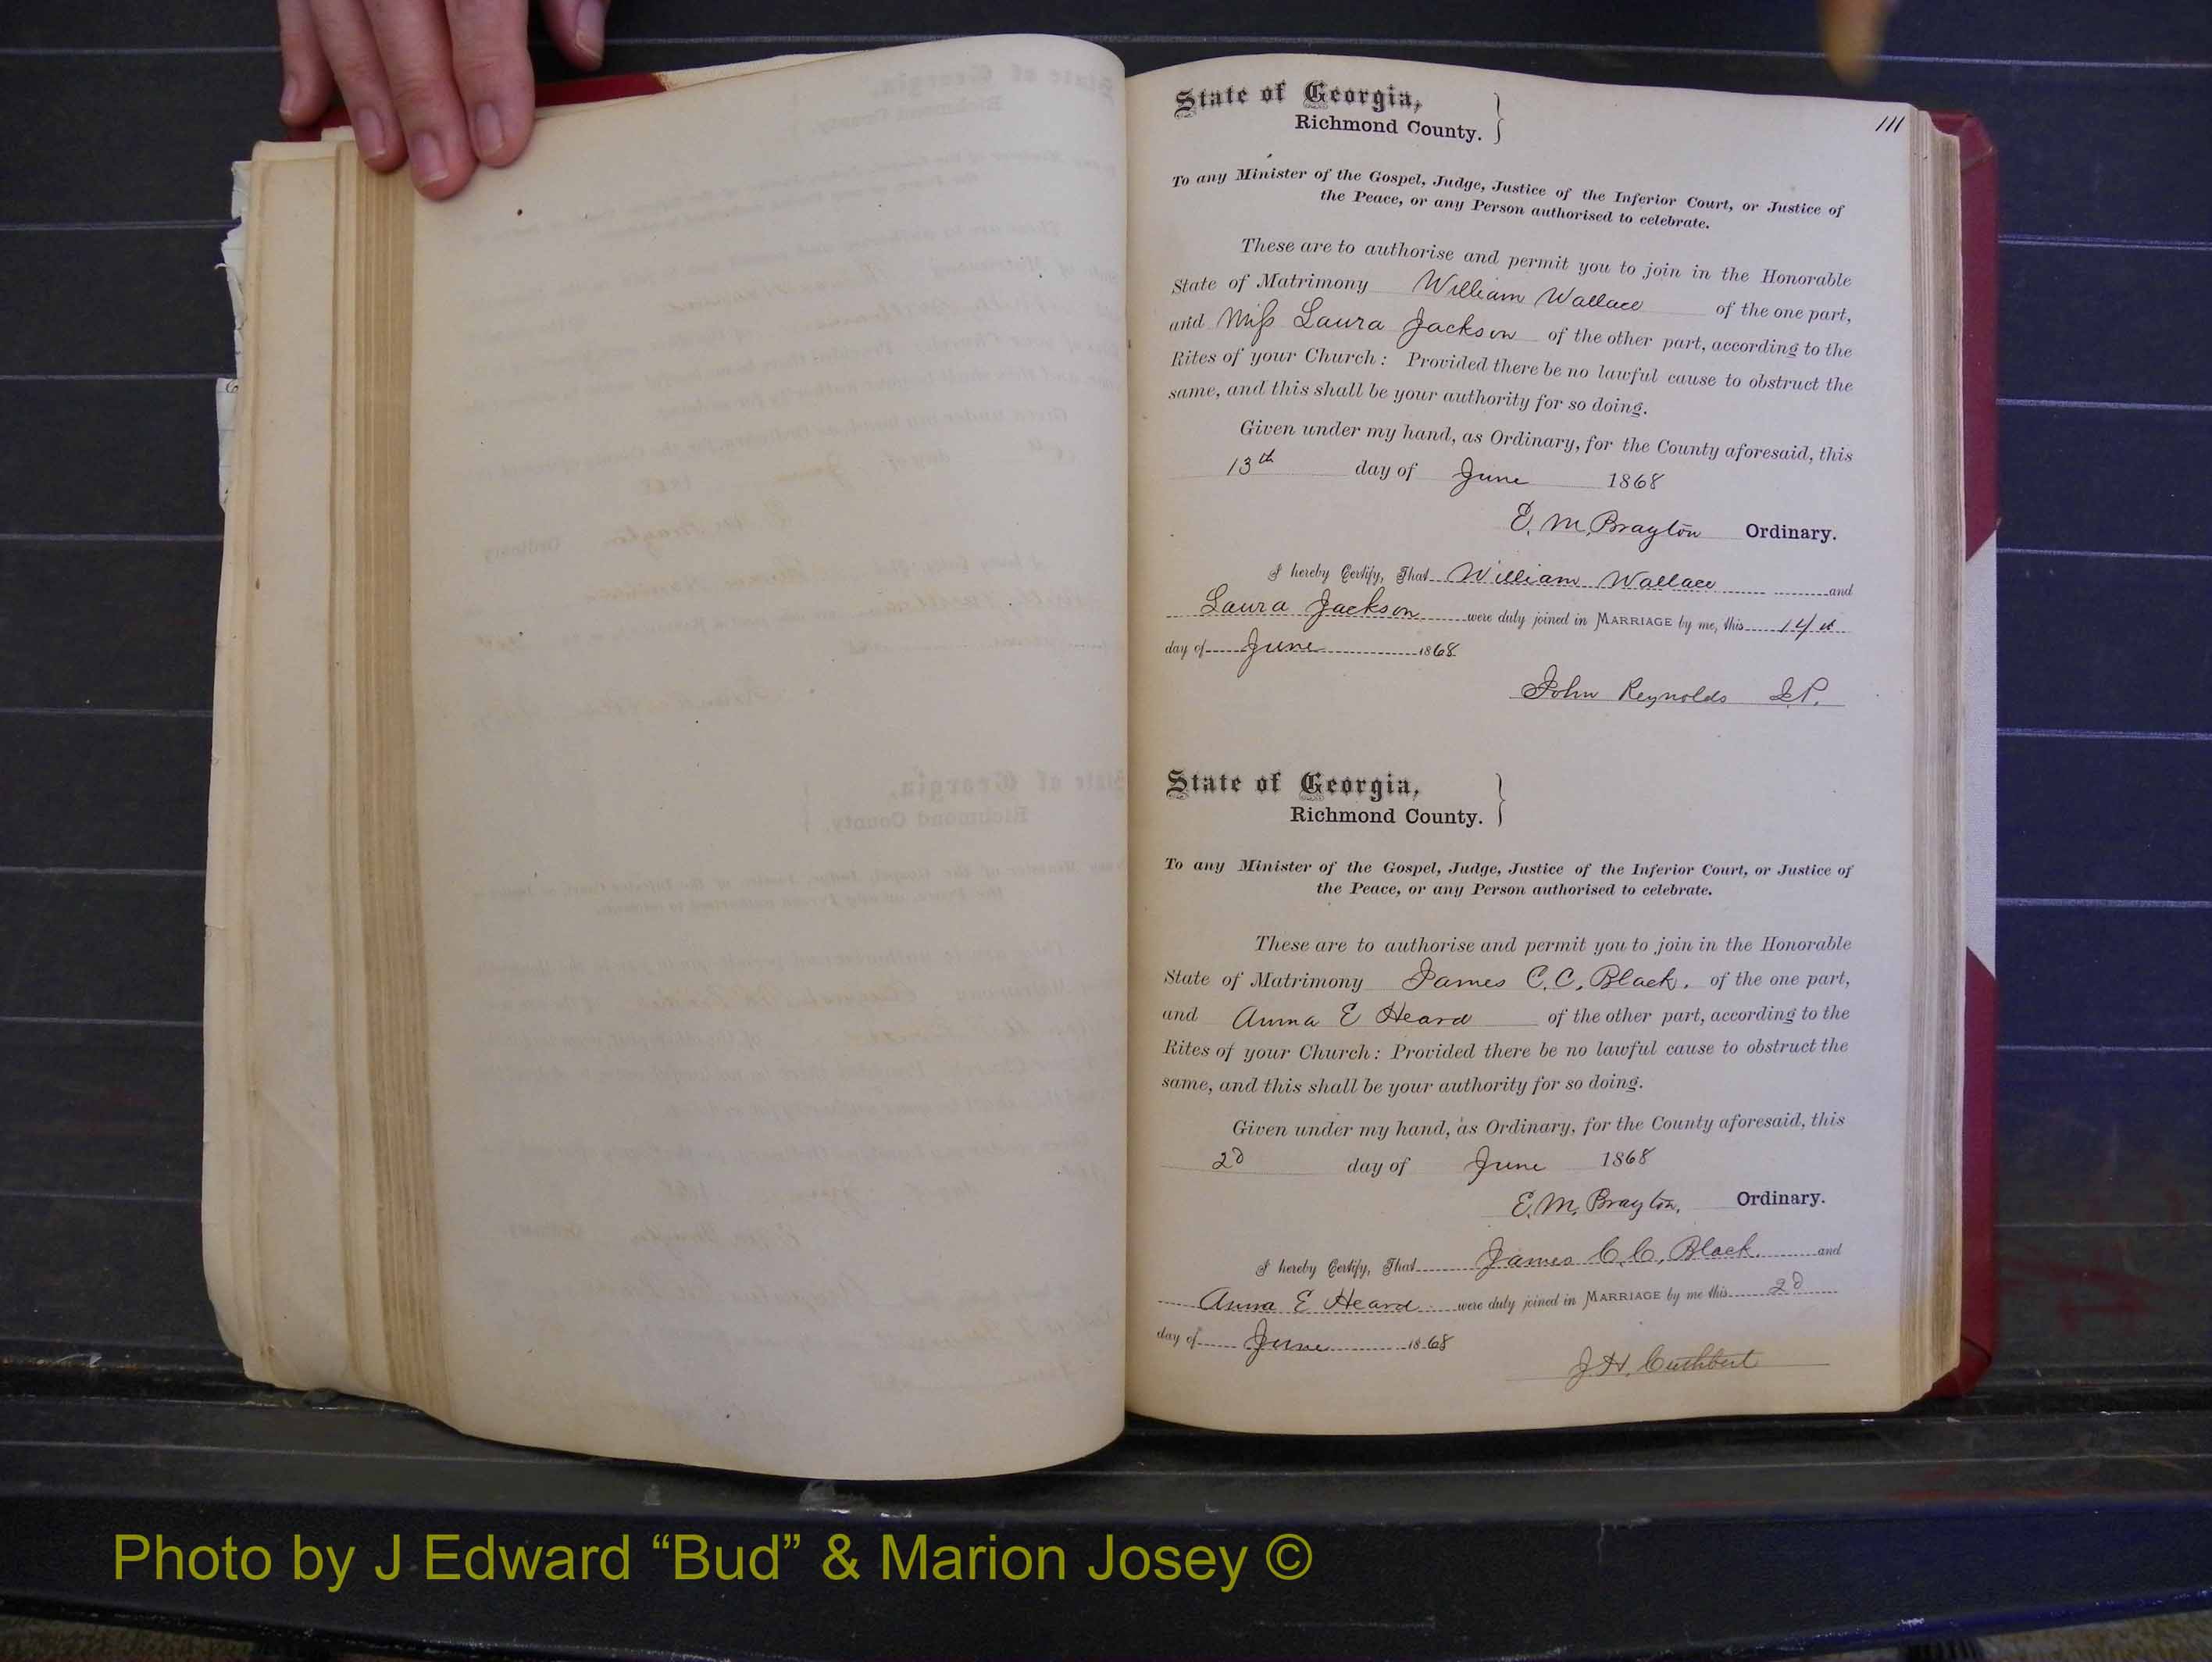 111
State of Georgia,
Richmond County.
To any Minister of the Gospel, Judge, Justice of the Inferior Court, or Justice of
the Peace, or any Person authorised to celebrate.
These are to authorise and permit you to join in the Honorable
State of Matrimony William Wallace of the one part,
and Miss Laura Jackson of the other part, according to the
Rites of your Church: Provided there be no lawful cause to obstruct the
same, and this shall be your authority for so doing.
Given under my hand, as Ordinary, for the County aforesaid, this
13th day of June 1868
E. M. Brayton Ordinary.
I hereby Certify, That William Wallace and
Laura Jackson were duly joined in MARRIAGE by me, this 14th
day of June 1868
John Reynolds J.P.
State of Georgia,
Richmond County.
To any Minister of the Gospel, Judge, Justice of the Inferior Court, or Justice of
the Peace, or any Person authorised to celebrate.
These are to authorise and permit you to join in the Honorable
State of Matrimony James C. C. Black. of the one part,
and Anna E Heard of the other part, according to the
Rites of your Church: Provided there be no lawful cause to obstruct the
same, and this shall be your authority for so doing.
Given under my hand, as Ordinary, for the County aforesaid, this
2d day of June 1868
E. M. Brayton, Ordinary.
I hereby Certify, That James C. C. Black. and
Anna E Heard were duly joined in MARRIAGE by me this 2d
day of June 1868
J. H. Cuthbert
Photo by J Edward “Bud” & Marion Josey ©